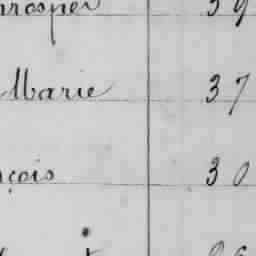 prosper 39
Marie 37
nçois 30